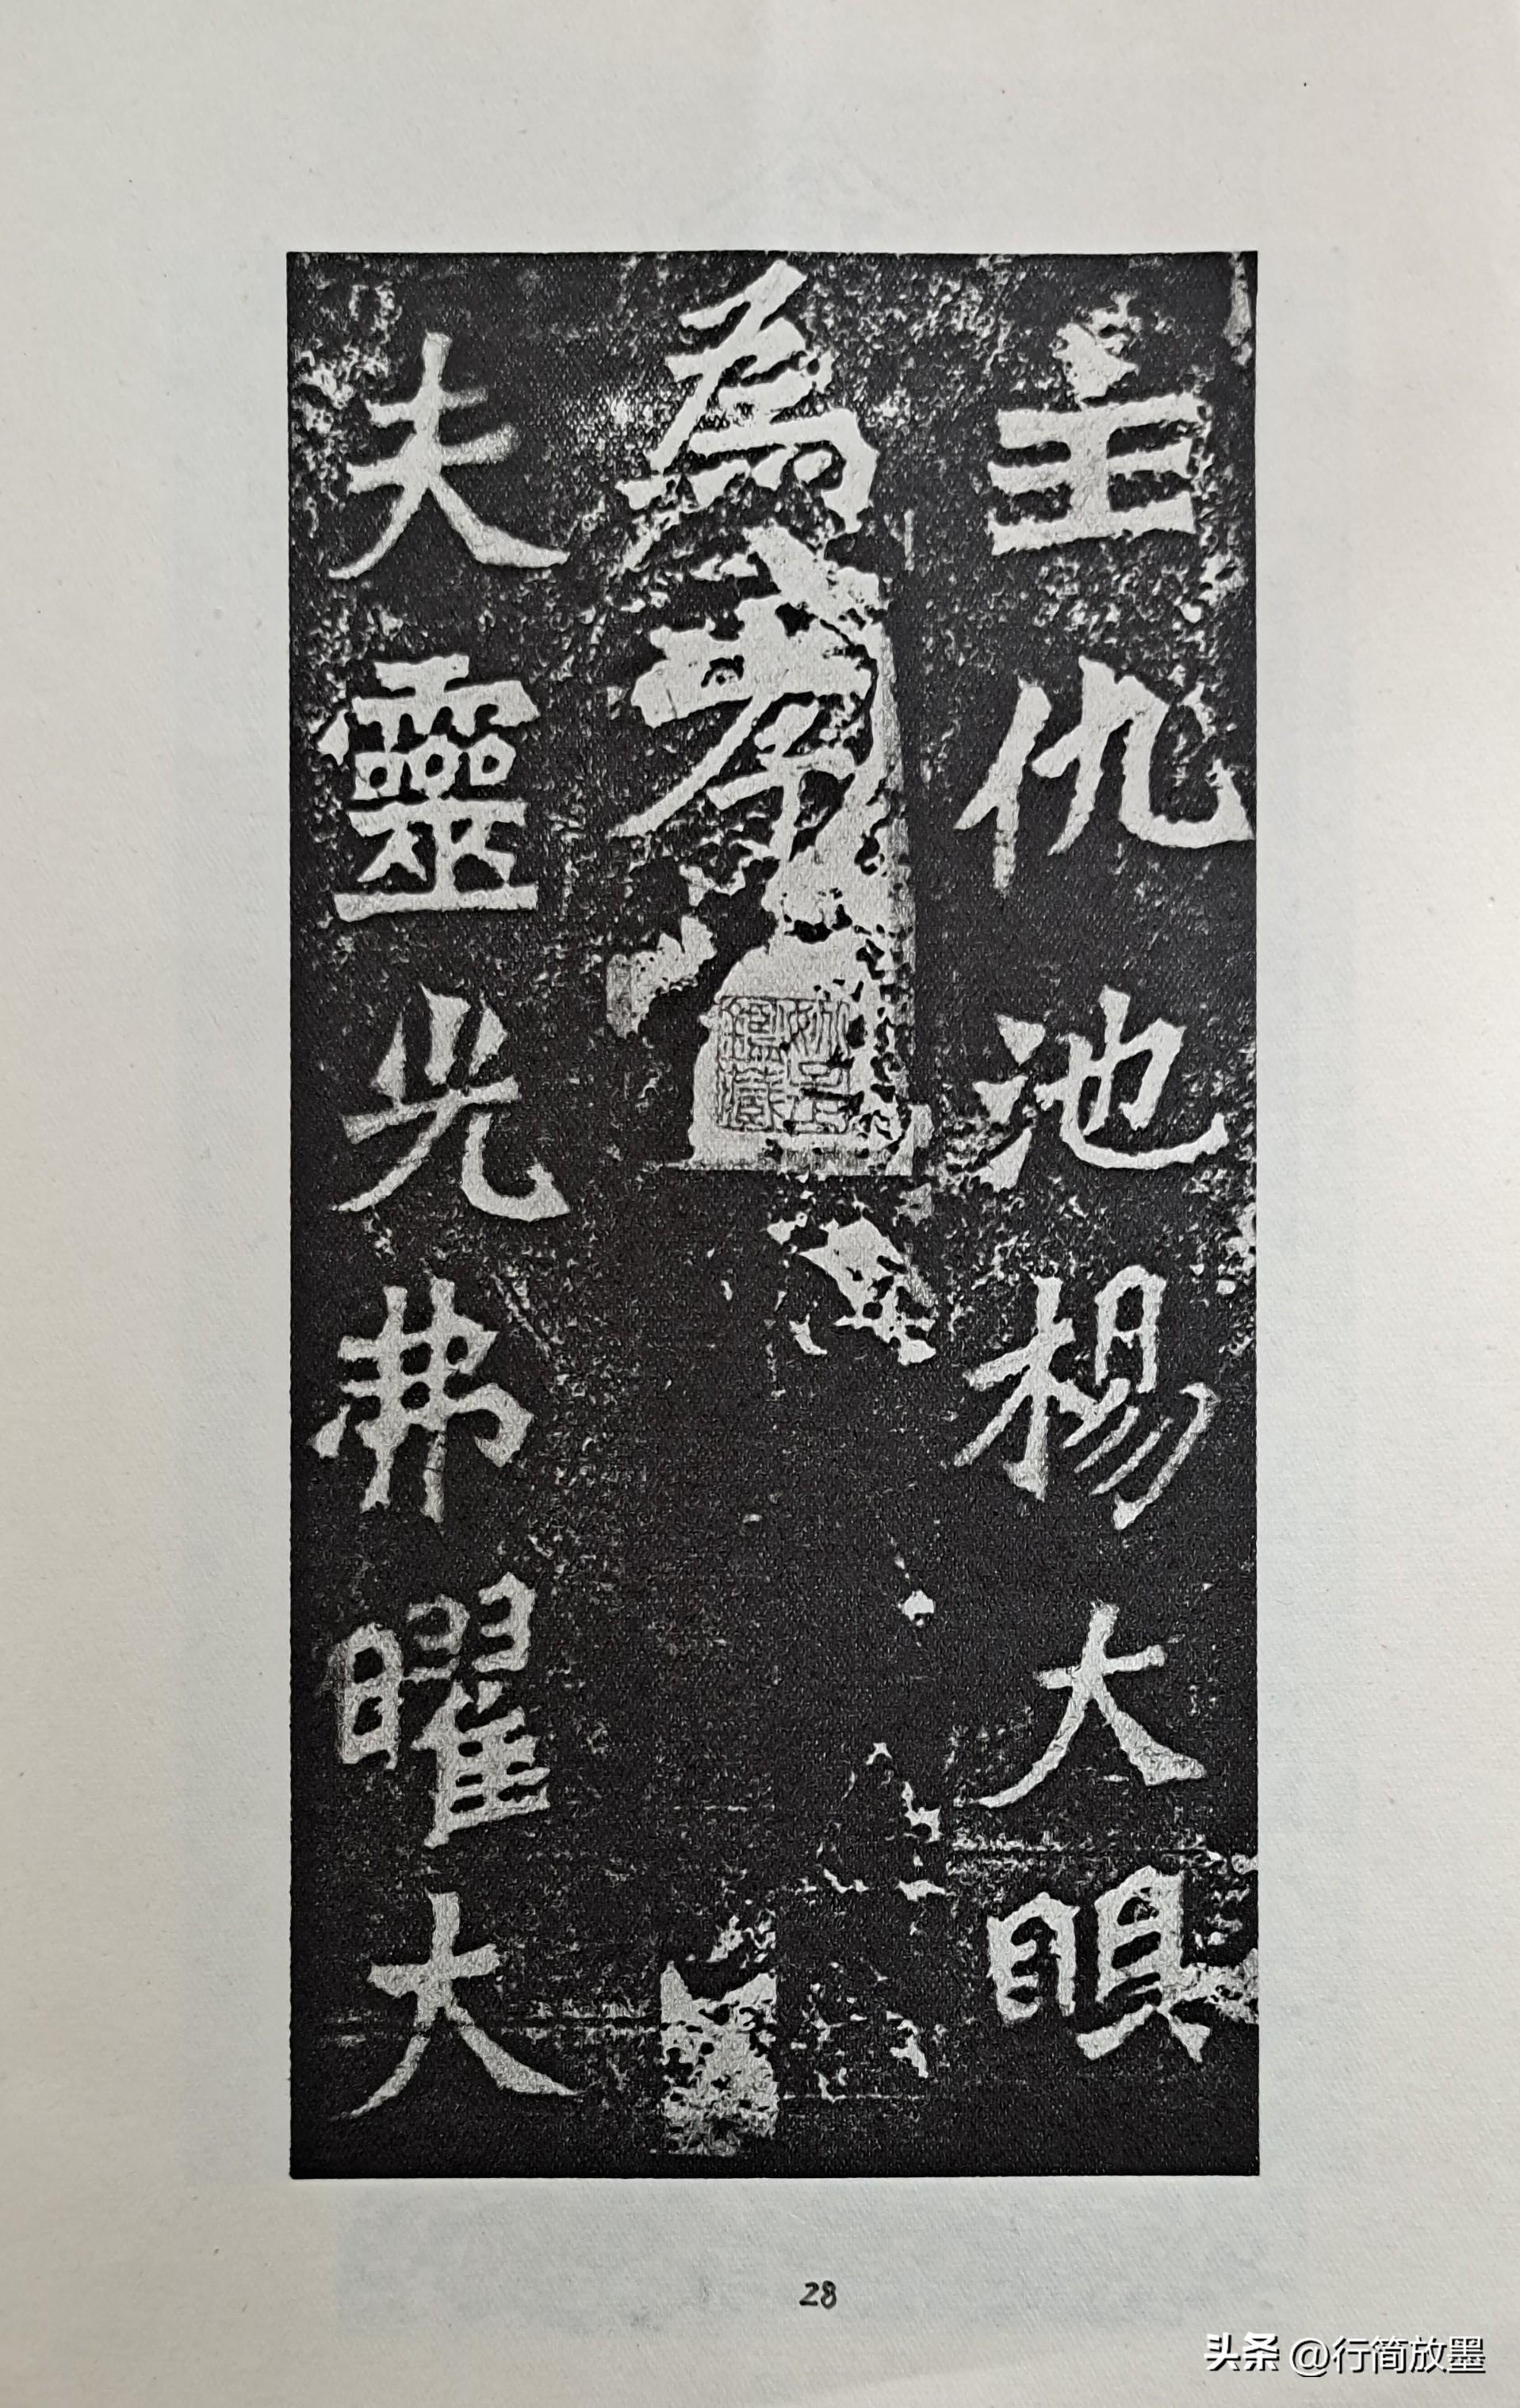 主仇池楊大眼
為孝
夫靈光弗曜大
28
头条 @行简放墨